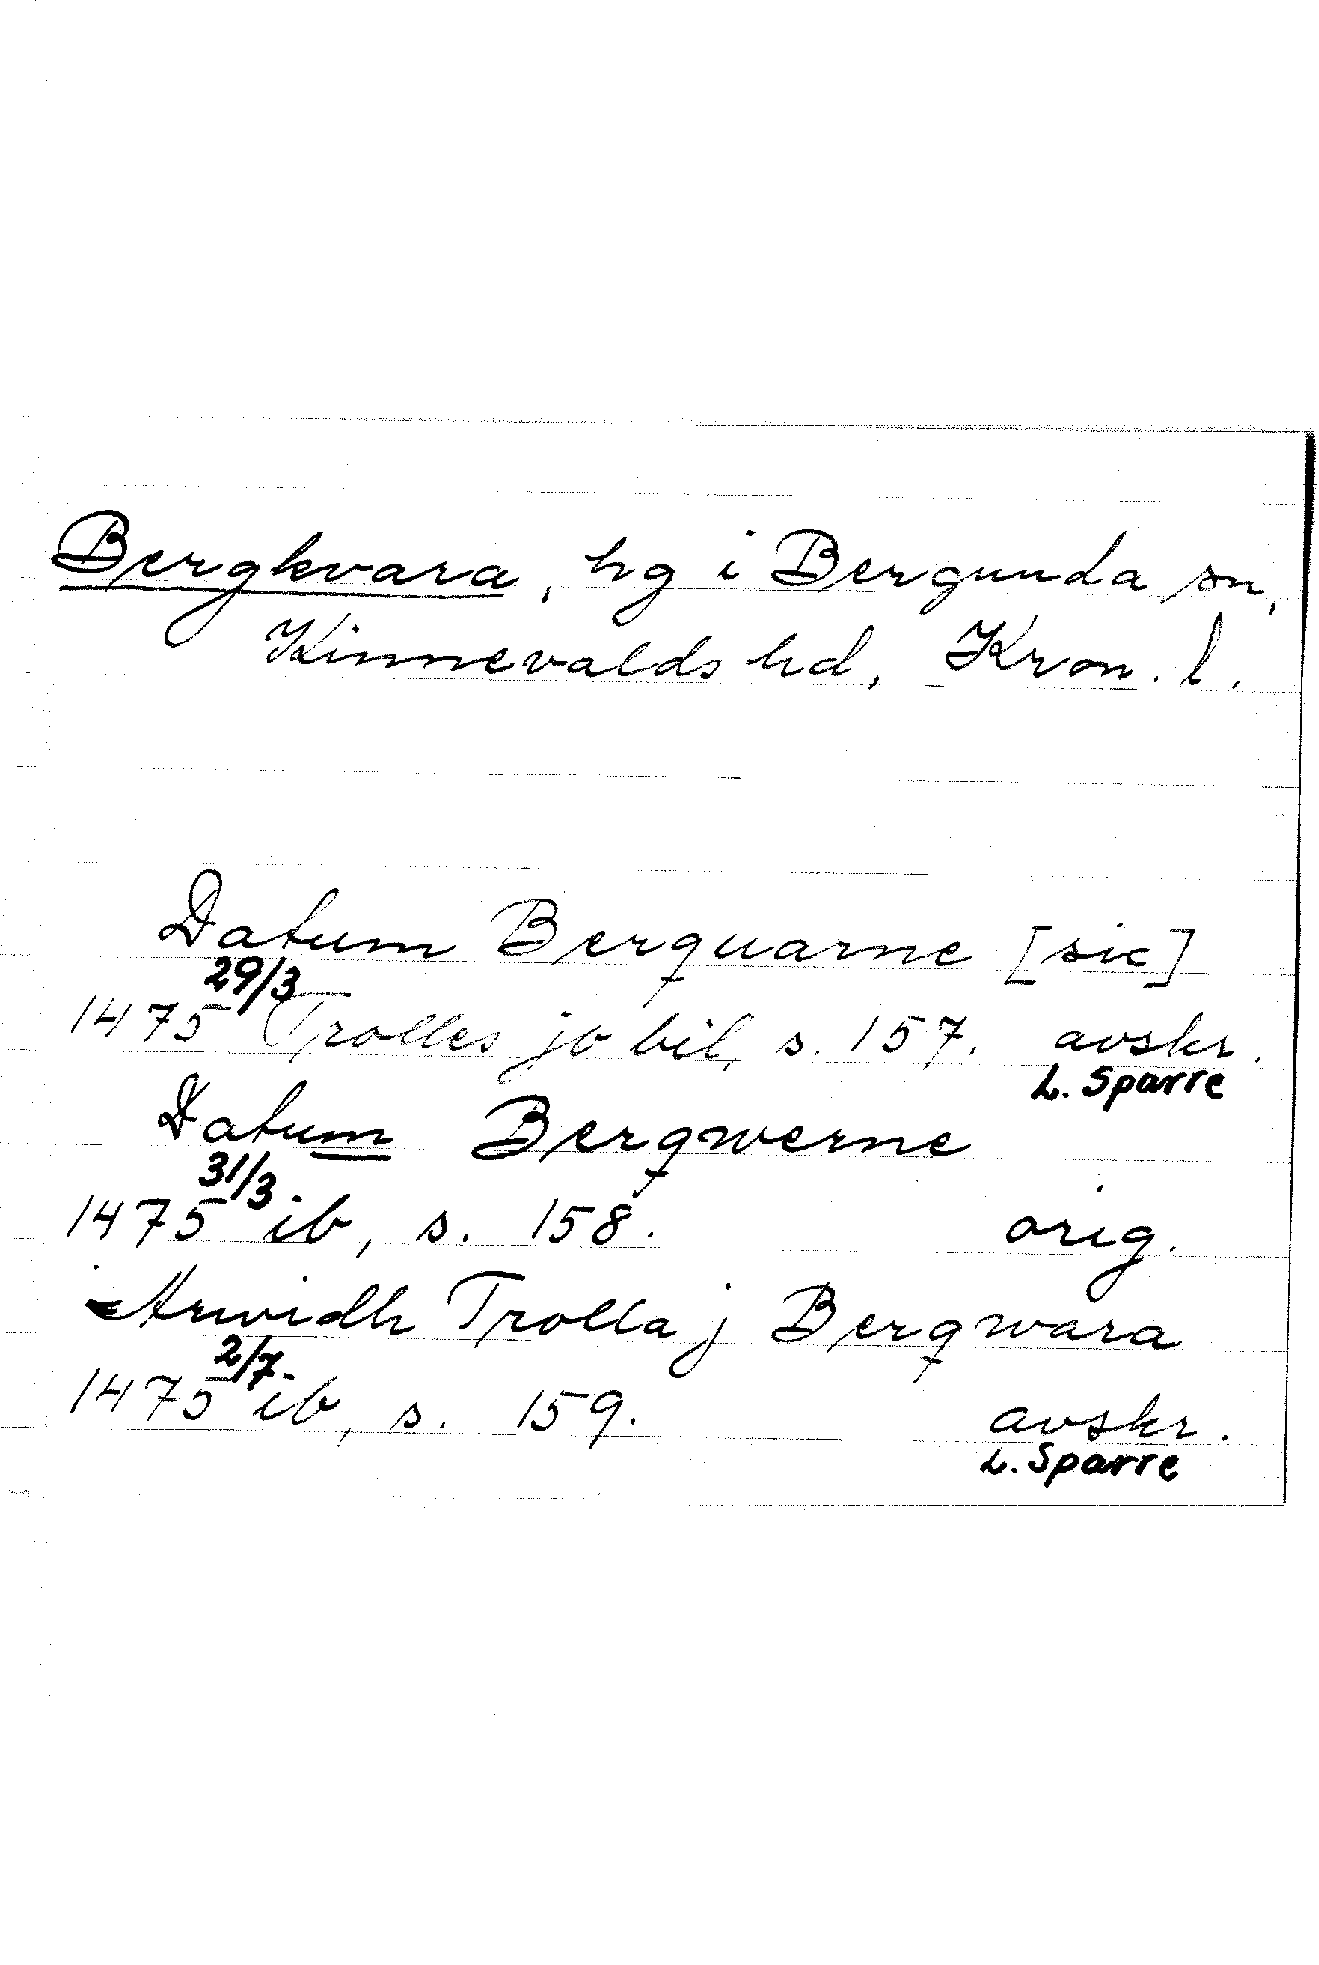 Bergkvara, hg i Bergunda sn,
Kinnevalds hd, Kron. l.
Datum Berquarne [sic]
29/3
1475 Trolles jb bil, s. 157. avskr.
L. Sparre
Datum Bergwerne
31/3
1475 ib, s. 158. orig.
Arwidh Trolla j Bergwara
2/7.
1475 ib, s. 159. avskr.
L. Sparre